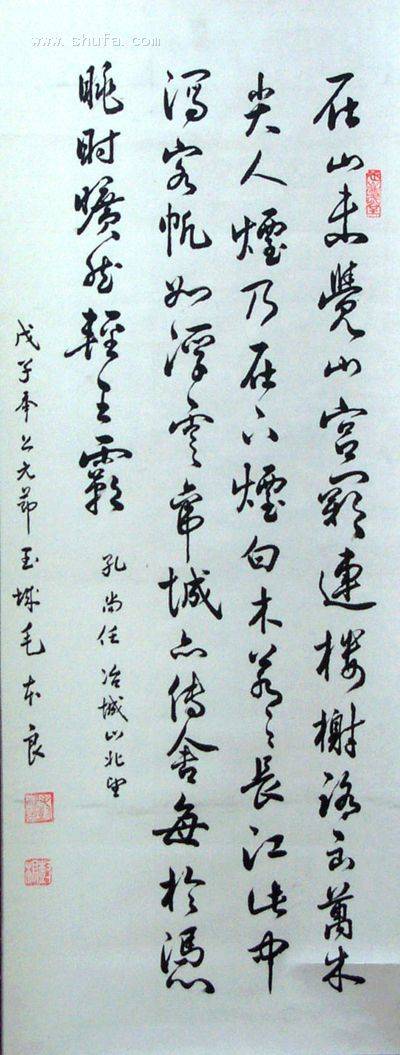 www.shufa.com
在山未覺山宮觀連樓榭路出萬木
尖人煙乃在下煙白木蒼々長江此中
瀉客帆如浮雲帝城亦傳舍每於憑
眺時曠然輕王霸
孔尚任 冶城山北望
戊子年上元節玉城毛本良